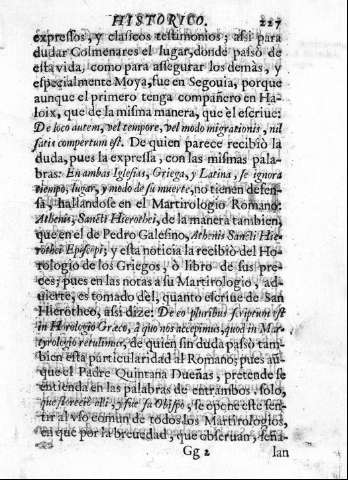 HISTORICO. 227
expressos, y clasicos testimonios; assi para
dudar Colmenares el lugar, donde passò de
esta vida, como para assegurar los demàs, y
especialmente Moya, fue en Segouia, porque
aunque el primero tenga compañero en Ha-
loix, que de la misma manera, que èl escriue:
De loco autem, vel tempore, vel modo migrationis, nil
satis compertum est. De quien parece recibiò la
duda, pues la expressa, con las mismas pala-
bras: En ambas Iglesias, Griega, y Latina, se ignora
tiempo, lugar, y modo de su muerte, no tienen defen-
sa, hallandose en el Martirologio Romano:
Athenis, Sancti Hierothei, de la manera tambien,
que en el de Pedro Galesino, Athenis Sancti Hie-
rothei Episcopi; y esta noticia la recibiò del Ho-
rologio de los Griegos, ò libro de sus pre-
ces; pues en las notas a su Martirologio, ad-
uierte, es tomado dèl, quanto escriue de San
Hierotheo, assi dize: De eo pluribus scriptum est
in Horologio Græco, à quo nos accepimus, quod in Mar-
tyrologio retulimus, de quien sin duda passò tam-
bien esta particularidad al Romano; pues aũ-
que el Padre Quintana Dueñas, pretende se
entienda en las palabras de entrambos, solo,
que floreciò alli, y fue su Obispo, se opone este sen-
tir al vso comun de todos los Martirologios,
en que por la breuedad, que obseruan, seña-
Gg 2 lan